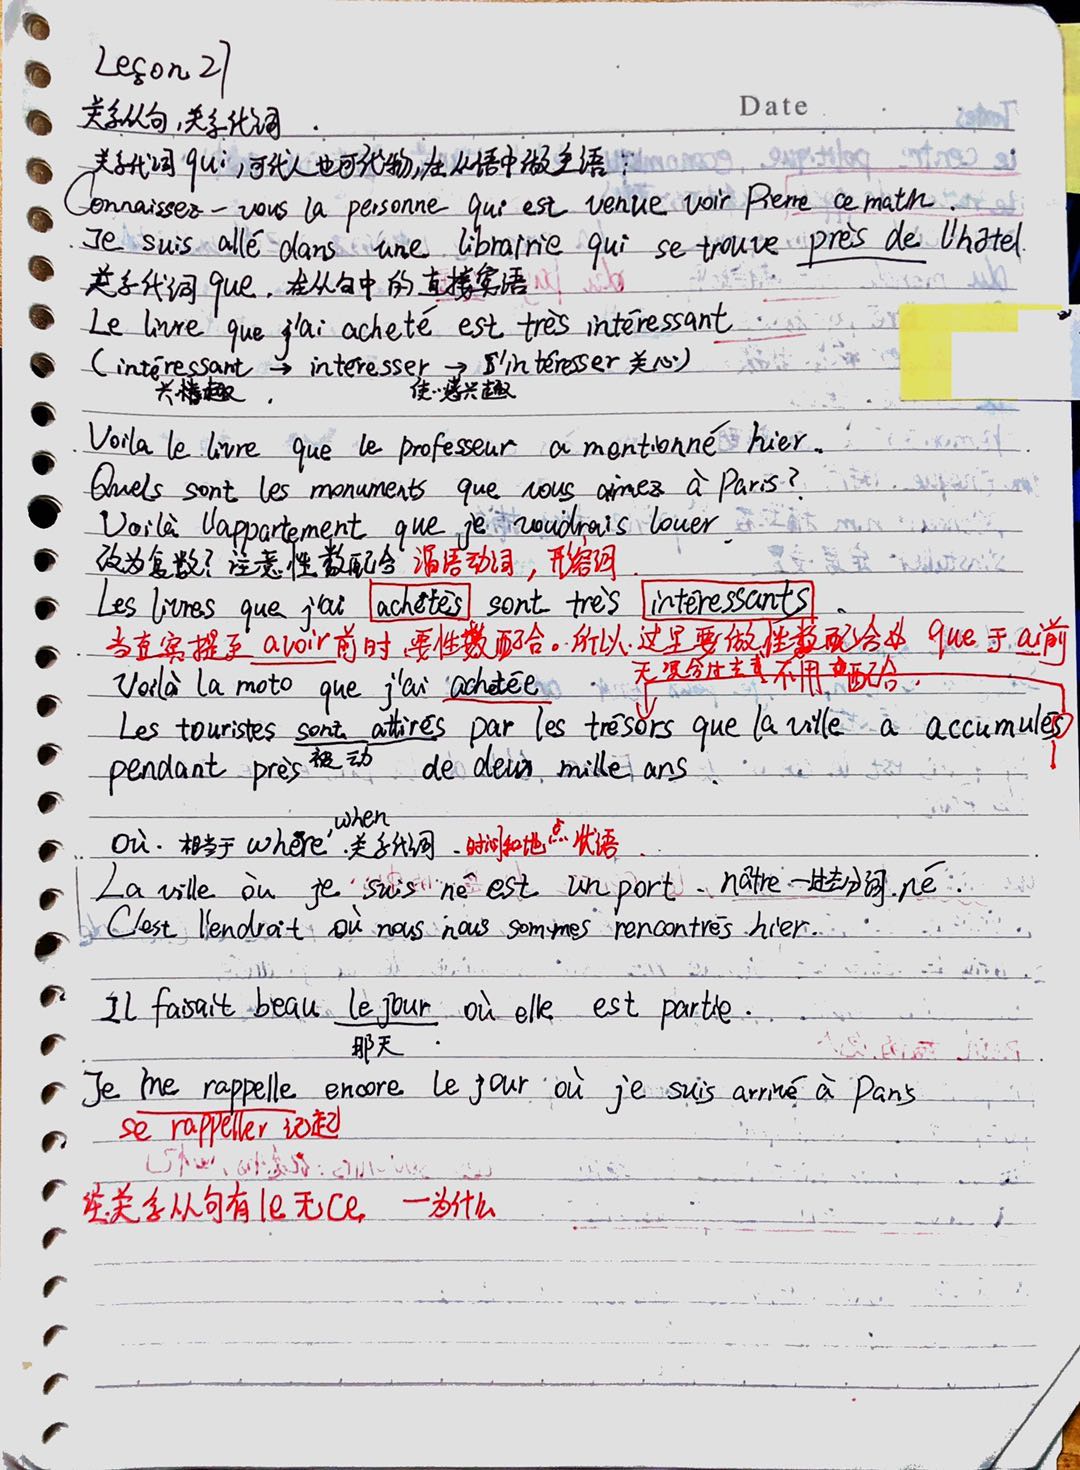 Leçon 21
Date
关系从句,关系代词.
关系代词 qui,可代人也可代物,在从语中做主语:
Connaissez-vous la personne qui est venue voir Pierre ce matin.
Je suis allé dans une librairie qui se trouve près de l'hôtel.
关系代词 que. 在从句中的直接宾语
Le livre que j'ai acheté est très intéressant
(intéressant → intéresser → s'intéresser 关心)
使…感兴趣
Voila le livre que le professeur a mentionné hier.
Quels sont les monuments que vous aimez à Paris?
Voilà l'appartement que je voudrais louer.
改为复数? 注意性数配合 谓语动词, 形容词.
Les livres que j'ai achetés sont très intéressants.
当直宾提至 avoir 前时,要性数配合。所以,这里要做性数配合 que 于 ai前
无 不用 配合.
Voilà la moto que j'ai achetée
Les touristes sont attirés par les trésors que la ville a accumulés
pendant près de deux mille ans.
被动
when
où. 相当于 where 关系代词. 时间和地点状语.
La ville où je suis né est un port. nâtre 一过去分词. né.
C'est l'endroit où nous nous sommes rencontrés hier.
Il faisait beau le jour où elle est partie.
那天.
Je me rappelle encore le jour où je suis arrivé à Paris
se rappeller 记起
关系从句有 le 无 ce. 一为什么